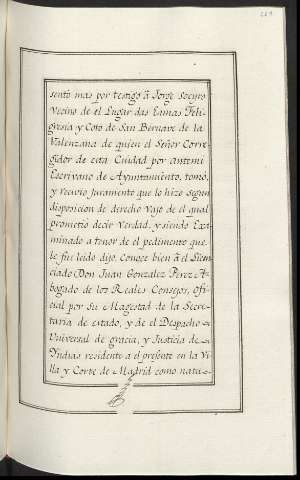 sentó mas por testigo á Jorge Soeiro
Vecino de el Lugar das Eamas Feli-
gresia y Coto de San Bernave de la
Valenzana de quien el Señor Corre-
gidor de esta Ciudad por antemi
Escrivano de Ayuntamiento, tomó,
y recivio Juramento que lo hizo segun
disposicion de derecho vajo de el qual
prometio decir Verdad, y siendo Exa-
minado a tenor de el pedimento que
le fue leido dijo: Conoce bien á el Licen-
ciado Don Juan Gonzalez Perez A-
bogado de los Reales Consejos, Ofi-
cial por su Magestad de la Secre-
taria de estado, y de el Despacho
Universal de gracia, y Justicia de
Yndias residente al presente en la Vi-
lla y Corte de Madrid como natu-